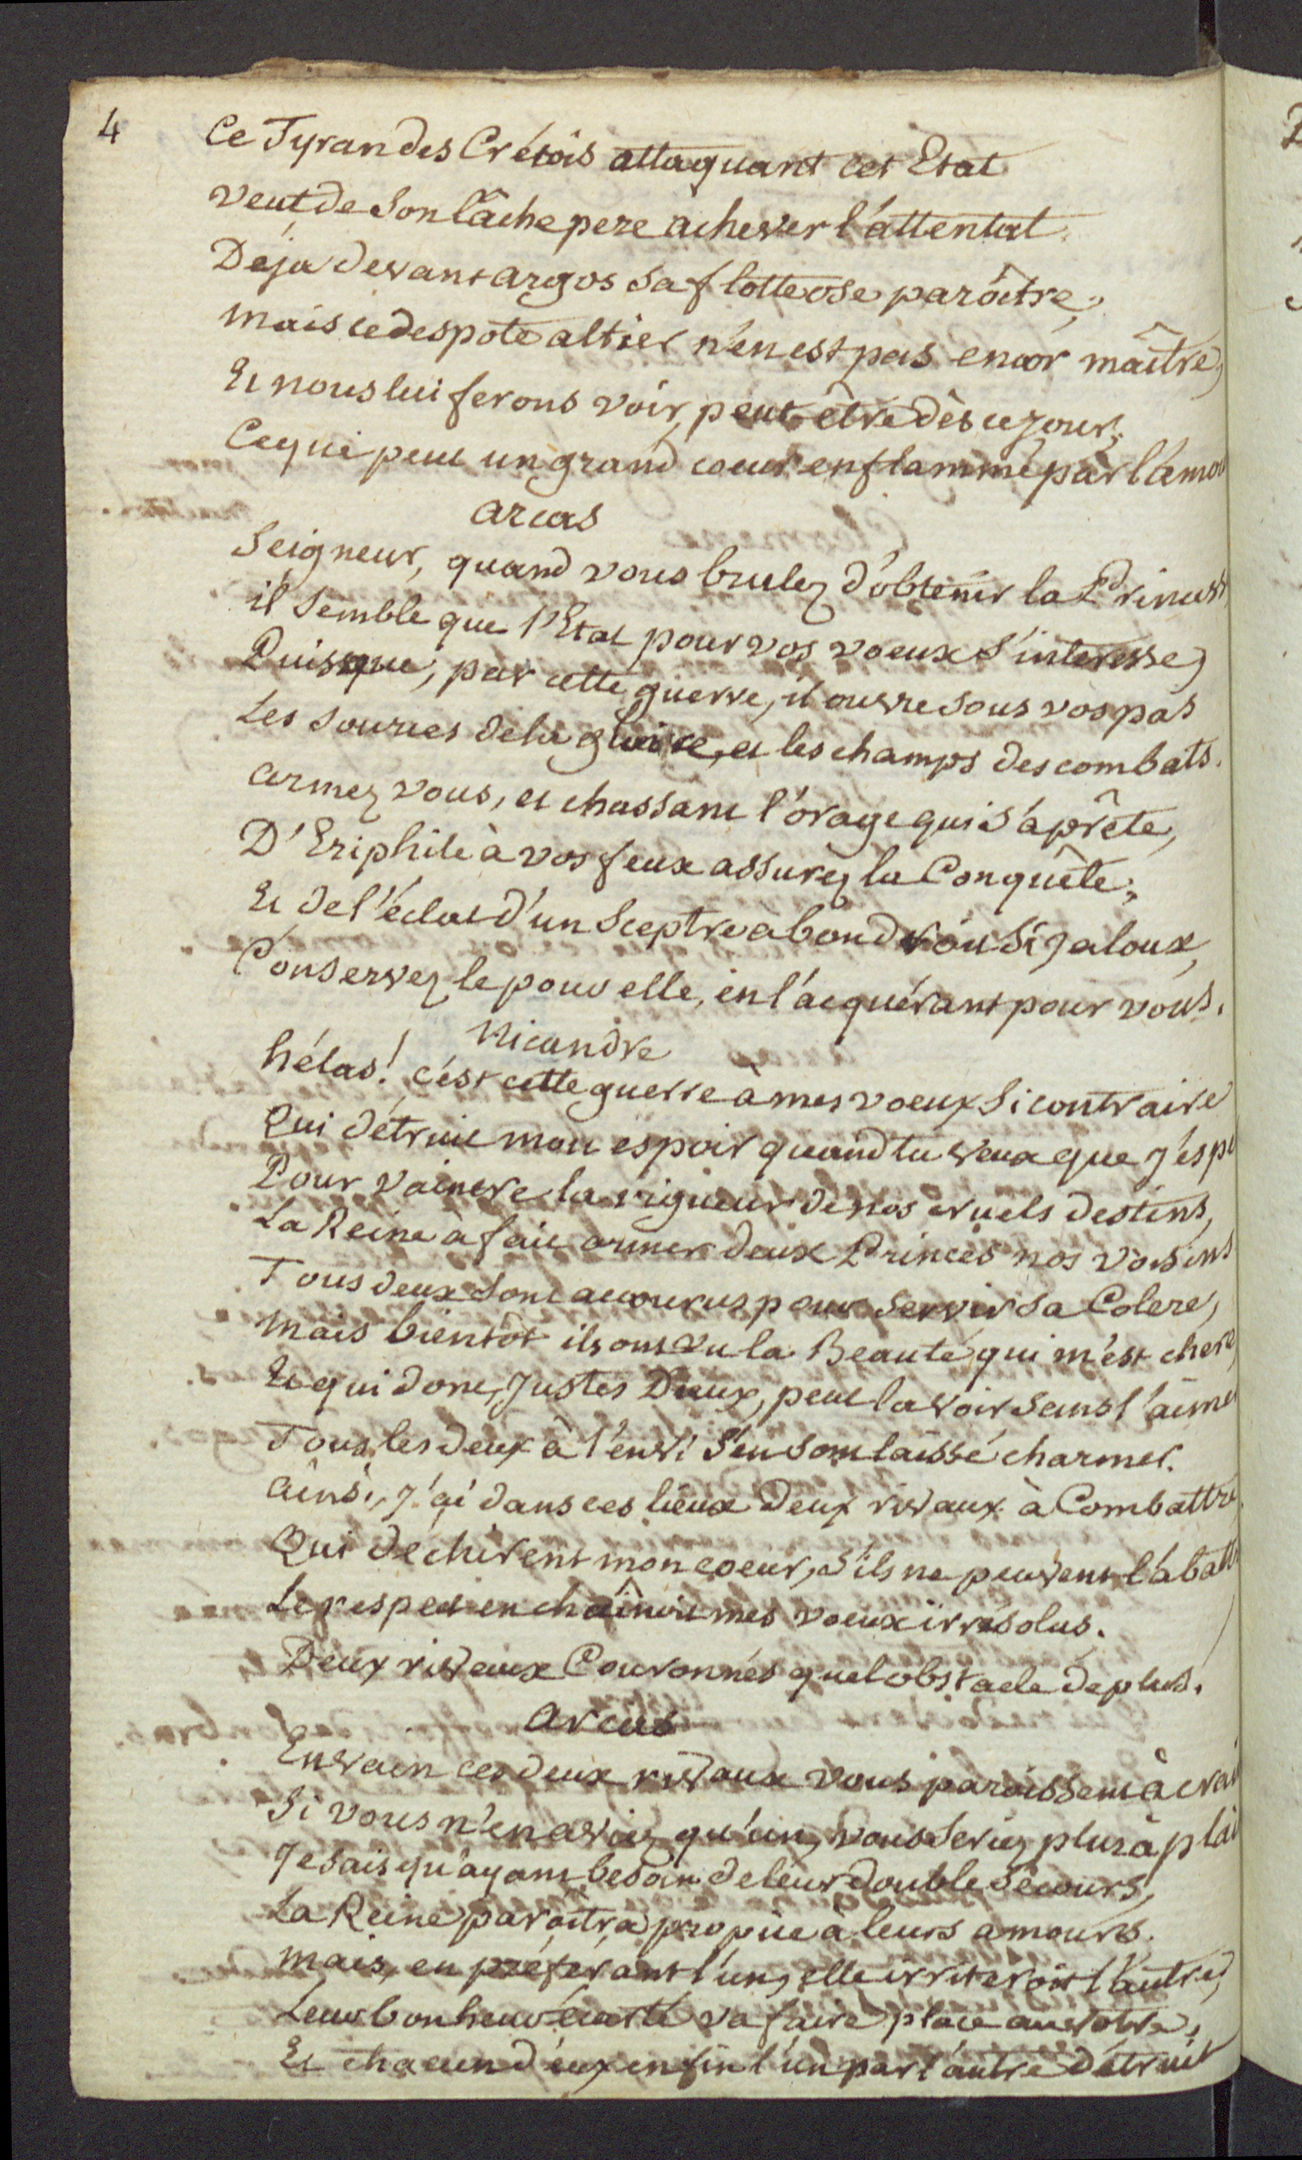 4
Ce Tyran des Crétois attaquant cet Etat
veut de Son lâche pere achever l'attentat.
Deja devant argos Sa flotte ose paroître,
mais ce despote altier n'en est pas encor maître,
Et nous lui ferons voir, peut-être dès ce jour,
Ce que peut un grand coeur enflammé par l'amou
arcas
Seigneur, quand vous brulez d'obtenir la Princess
il Semble que l'Etat pour vos voeux S'interesse,
Puisque, par cette guerre, il ouvre sous vos pas
Les Sources de la gloire, et les champs des combats.
armez vous, et chassant l'orage qui S'aprête,
D'Eriphile à vos feux assurez la Conquête,
Et de l'éclat d'un Sceptre abondroit Si jaloux,
Conservez le pour elle, en l'acquérant pour vous.
Nicandre
hélas! c'est cette guerre à mes voeux Si contraire
Qui détruit mon espoir quand tu veux que j'espe
Pour vaincre la rigueur de nos cruels destins,
La Reine à fait armer deux Princes nos voisins
Tous deux Sont accourus pour Servir Sa Colere,
mais bientôt ils ont vu la Beauté qui m'est chere,
Et qui donc, Justes Dieux, peut la voir Sans l'aimer
Tous les deux à l'envi S'en Sont laissé charmer.
ainsi, j'ai dans ces lieux deux rivaux à Combattre
Qui déchirent mon coeur, S'ils ne peuvent l'abatt
Le respect enchaînoit mes voeux irrésolus.
Deux rivaux Couronnés quel obstacle de plus.
arcas
En vain ces deux rivaux vous paroissent à crai
Si vous n'en aviez qu'un, vous Seriez plus à plai
Je sais qu'ayant besoin de leur double Secours,
La Reine paroîtra propice à leurs amours.
mais, en préférant l'un, elle irriteroit l'autre,
Leur bonheur écarté va faire place au votre,
Et chacun d'eux enfin l'un par l'autre détruit